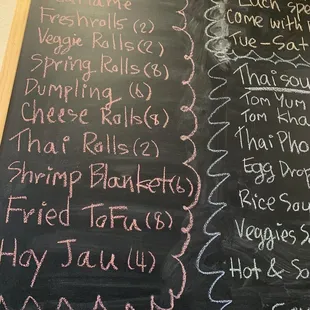 Freshrolls (2)
Veggie Rolls (2)
Spring Rolls (8)
Dumpling (6)
Cheese Rolls (8)
Thai Rolls (2)
Shrimp Blanket (6)
Fried Tofu (8)
Hoy Jau (4)
Lunch spe
come with
Tue-Sat
Thai sou
Tom Yum
Tom Kha
Thai Pho
Egg Drop
Rice Sou
Veggies S
Hot & So